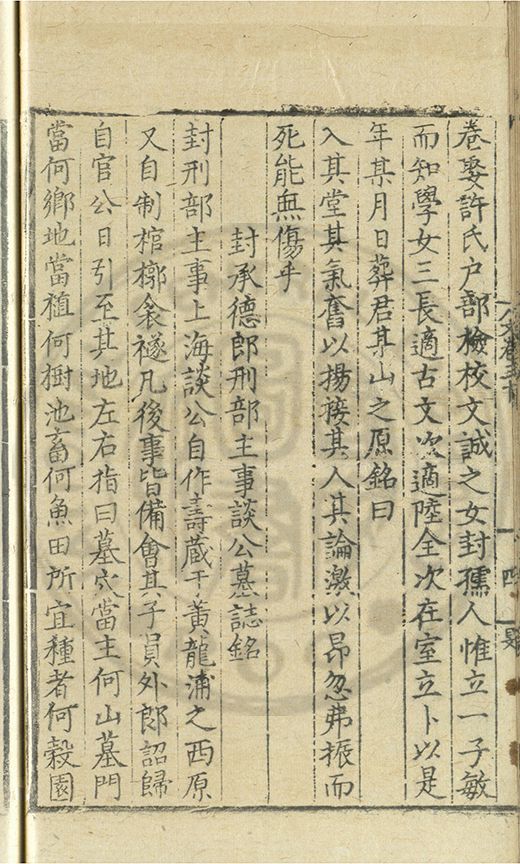 卷娶許氏户部檢校文誠之女封孺人惟立一子敏
而知學女三長適古文次適陸全次在室立卜以是
年某月日葬君某山之原銘曰
入其堂其氣奮以揚接其人其論激以昂忽弗振而
死能無傷乎
封承德郎刑部主事談公墓誌銘
封刑部主事上海談公自作壽藏于黄龍浦之西原
又自制棺槨衾禭凡後事皆備會其子員外郎詔歸
自官公日引至其地左右指曰墓穴當主何山墓門
當何鄉地當植何樹池畜何魚田所宜種者何榖園